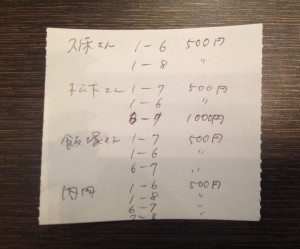 久保さん 1-6 500円
1-8 〃
松下さん 1-7 500円
1-6 〃
8-9 1000円
飯塚さん 1-7 500円
1-6 〃
6-7 〃
内円 1-6 500円
1-8 〃
6-7 〃
7-8 〃